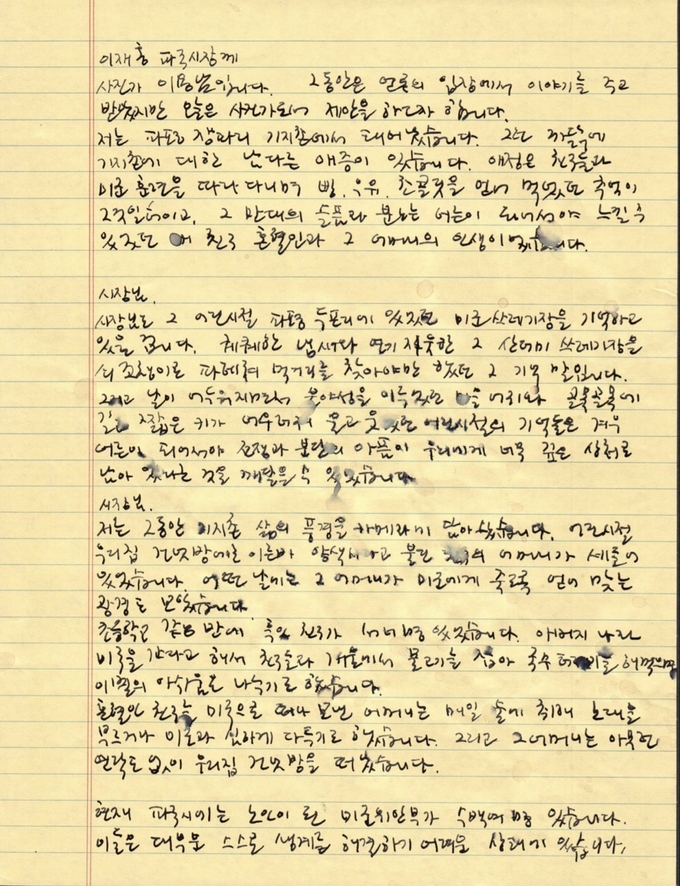 이재홍 파주시장께
사진가 이용남입니다. 그동안은 언론의 입장에서 이야기를 주고
받았지만 오늘은 사진가로서 제안을 하고자 합니다.
저는 파평 장파리 기지촌에서 태어났습니다. 그런 까닭에
기지촌에 대한 남다른 애증이 있습니다. 애정은 친구들과
미군 훈련을 따라 다니며 빵, 우유, 초콜릿을 얻어 먹었던 추억이
그것일 터이고, 그 반대의 슬픔과 분노는 어른이 되어서야 느낄 수
있었던 내 친구 혼혈인과 그 어머니의 인생이었습니다.
시장님.
시장님도 그 어린시절 파평 두포리에 있었던 미군쓰레기장을 기억하고
있을 겁니다. 퀘퀘한 냄새와 연기 자욱한 그 산더미 쓰레기장을
쇠꼬챙이로 파헤쳐 먹거리를 찾아야만 했던 그 기억 말입니다.
그리고 날이 어두워지면서 불야성을 이루었던 마을 어귀와 골목골목에
길고 짧은 키가 어우러져 울고 웃었던 어린시절의 기억들은 겨우
어른이 되어서야 전쟁과 분단의 아픔이 우리에게 너무 깊은 상처로
남아 있다는 것을 깨달을 수 있었습니다.
시장님.
저는 그동안 기지촌 삶의 풍경을 카메라에 담아 왔습니다. 어린시절
우리집 건넛방에는 이른바 양색시라고 불린 친구의 어머니가 세들어
있었습니다. 어떤 날에는 그 어머니가 미군에게 죽도록 얻어 맞는
광경도 보았습니다.
초등학교 같은 반에 혼혈 친구가 서너명 있었습니다. 아버지 나라
미국을 간다고 해서 친구들과 개울에서 물고기를 잡아 국수 털레기를 해먹으며
이별의 아쉬움을 나누기도 했습니다.
혼혈인 친구를 미국으로 떠나 보낸 어머니는 매일 술에 취해 노래를
부르거나 미군과 심하게 다투기도 했습니다. 그리고 그 어머니는 아무런
연락도 없이 우리집 건넛방을 떠났습니다.
현재 파주시에는 노인이 된 미군위안부가 수백여 명 있습니다.
이들은 대부분 스스로 생계를 해결하기 어려운 상태에 있습니다.